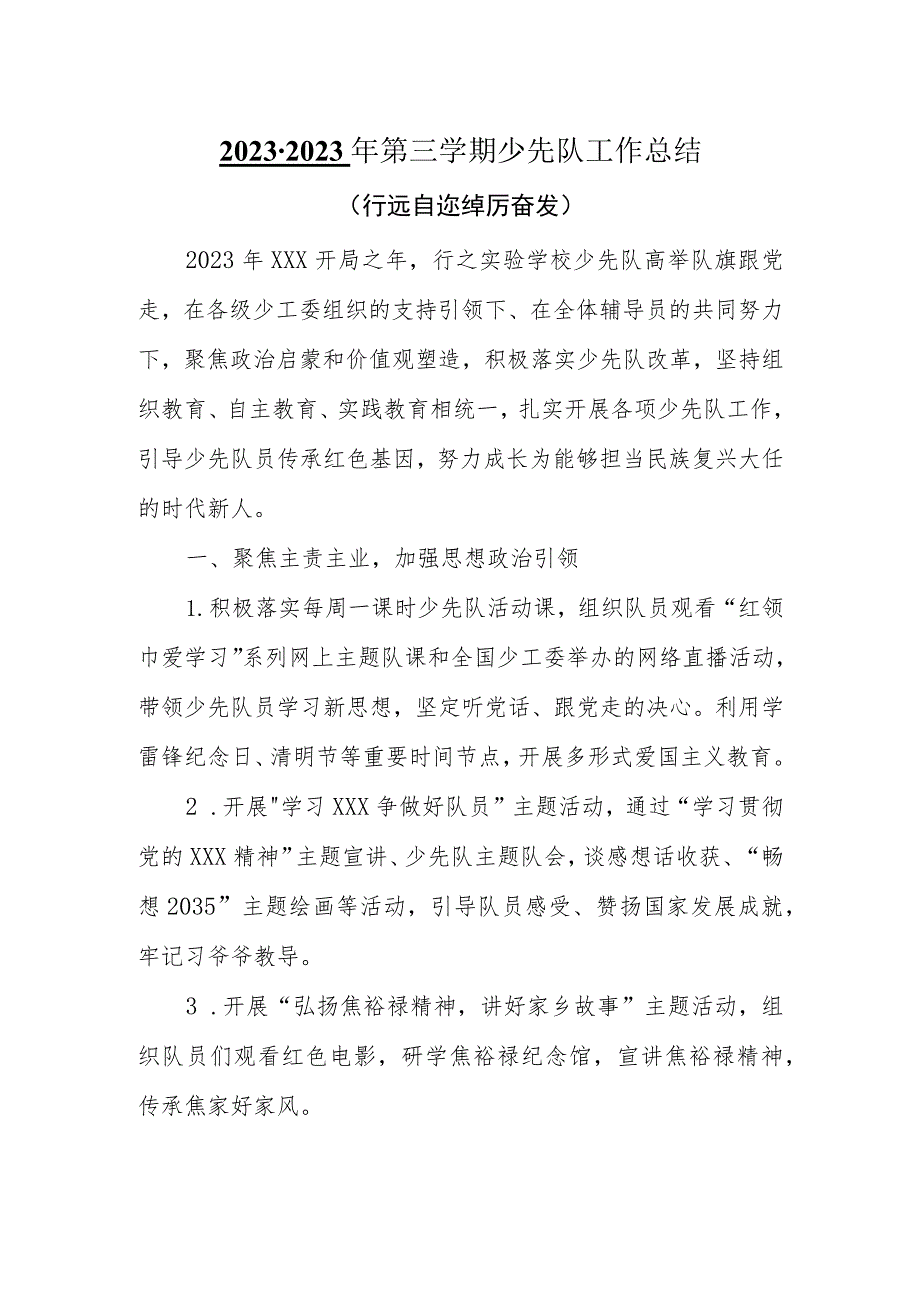 2023·2023年第三学期少先队工作总结
（行远自迩绰厉奋发）
2023 年 XXX 开局之年，行之实验学校少先队高举队旗跟党
走，在各级少工委组织的支持引领下、在全体辅导员的共同努力
下，聚焦政治启蒙和价值观塑造，积极落实少先队改革，坚持组
织教育、自主教育、实践教育相统一，扎实开展各项少先队工作，
引导少先队员传承红色基因，努力成长为能够担当民族复兴大任
的时代新人。
一、聚焦主责主业，加强思想政治引领
1.积极落实每周一课时少先队活动课，组织队员观看“红领
巾爱学习”系列网上主题队课和全国少工委举办的网络直播活动，
带领少先队员学习新思想，坚定听党话、跟党走的决心。利用学
雷锋纪念日、清明节等重要时间节点，开展多形式爱国主义教育。
2 .开展"学习 XXX 争做好队员”主题活动，通过“学习贯彻
党的 XXX 精神”主题宣讲、少先队主题队会，谈感想话收获、“畅
想 2035”主题绘画等活动，引导队员感受、赞扬国家发展成就，
牢记习爷爷教导。
3 .开展“弘扬焦裕禄精神，讲好家乡故事”主题活动，组
织队员们观看红色电影，研学焦裕禄纪念馆，宣讲焦裕禄精神，
传承焦家好家风。